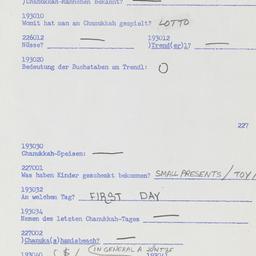 )Chanukkah-Männchen bekannt? —
193010
Womit hat man an Chanukkah gespielt? LOTTO
226012 193012
Nüsse? — )Trend(er)l? —
193020
Bedeutung der Buchstaben am Trendl: O
227
193030
Chanukkah-Speisen: —
227001
Was haben Kinder geschenkt bekommen? SMALL PRESENTS / TOY/
193032
An welchem Tag? FIRST DAY
193034
Namen des letzten Chanukkah-Tages —
227002
)Chanuka(s)hamishosch? —
IN GENERAL A
193040